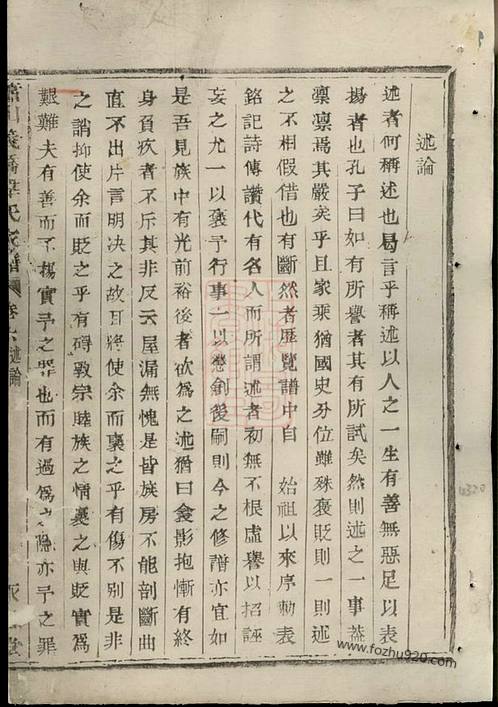 述論
述者何稱述也曷言乎稱述以人之一生有善無惡足以表
揚者也孔子曰如有所譽者其有所試矣然則述之一事蓋
凛凛焉其嚴矣乎且家乘猶國史分位雖殊褒貶則一則述
之不相假借也有斷然者歷覽譜中自 始祖以來序勅表
銘記詩傳讚代有名人而所謂述者初無不根虛譽以招誣
妄之尤一以褒予行事一以懲創後嗣則今之修譜亦宜如
是吾見族中有光前裕後者欲為之述猶曰衾影抱慚有終
身負疚者不斥其非反云屋漏無愧是皆族房不能剖斷曲
直不出片言明決之故日將使余而襃之乎有傷不别是非
之誚抑使余而貶之乎有碍敦宗睦族之情襃之與貶實爲
艱難夫有善而不揚實予之罪也而有過爲之隱亦予之罪
氏家譜 卷 述論 堂
4320
www.fozhu920.com